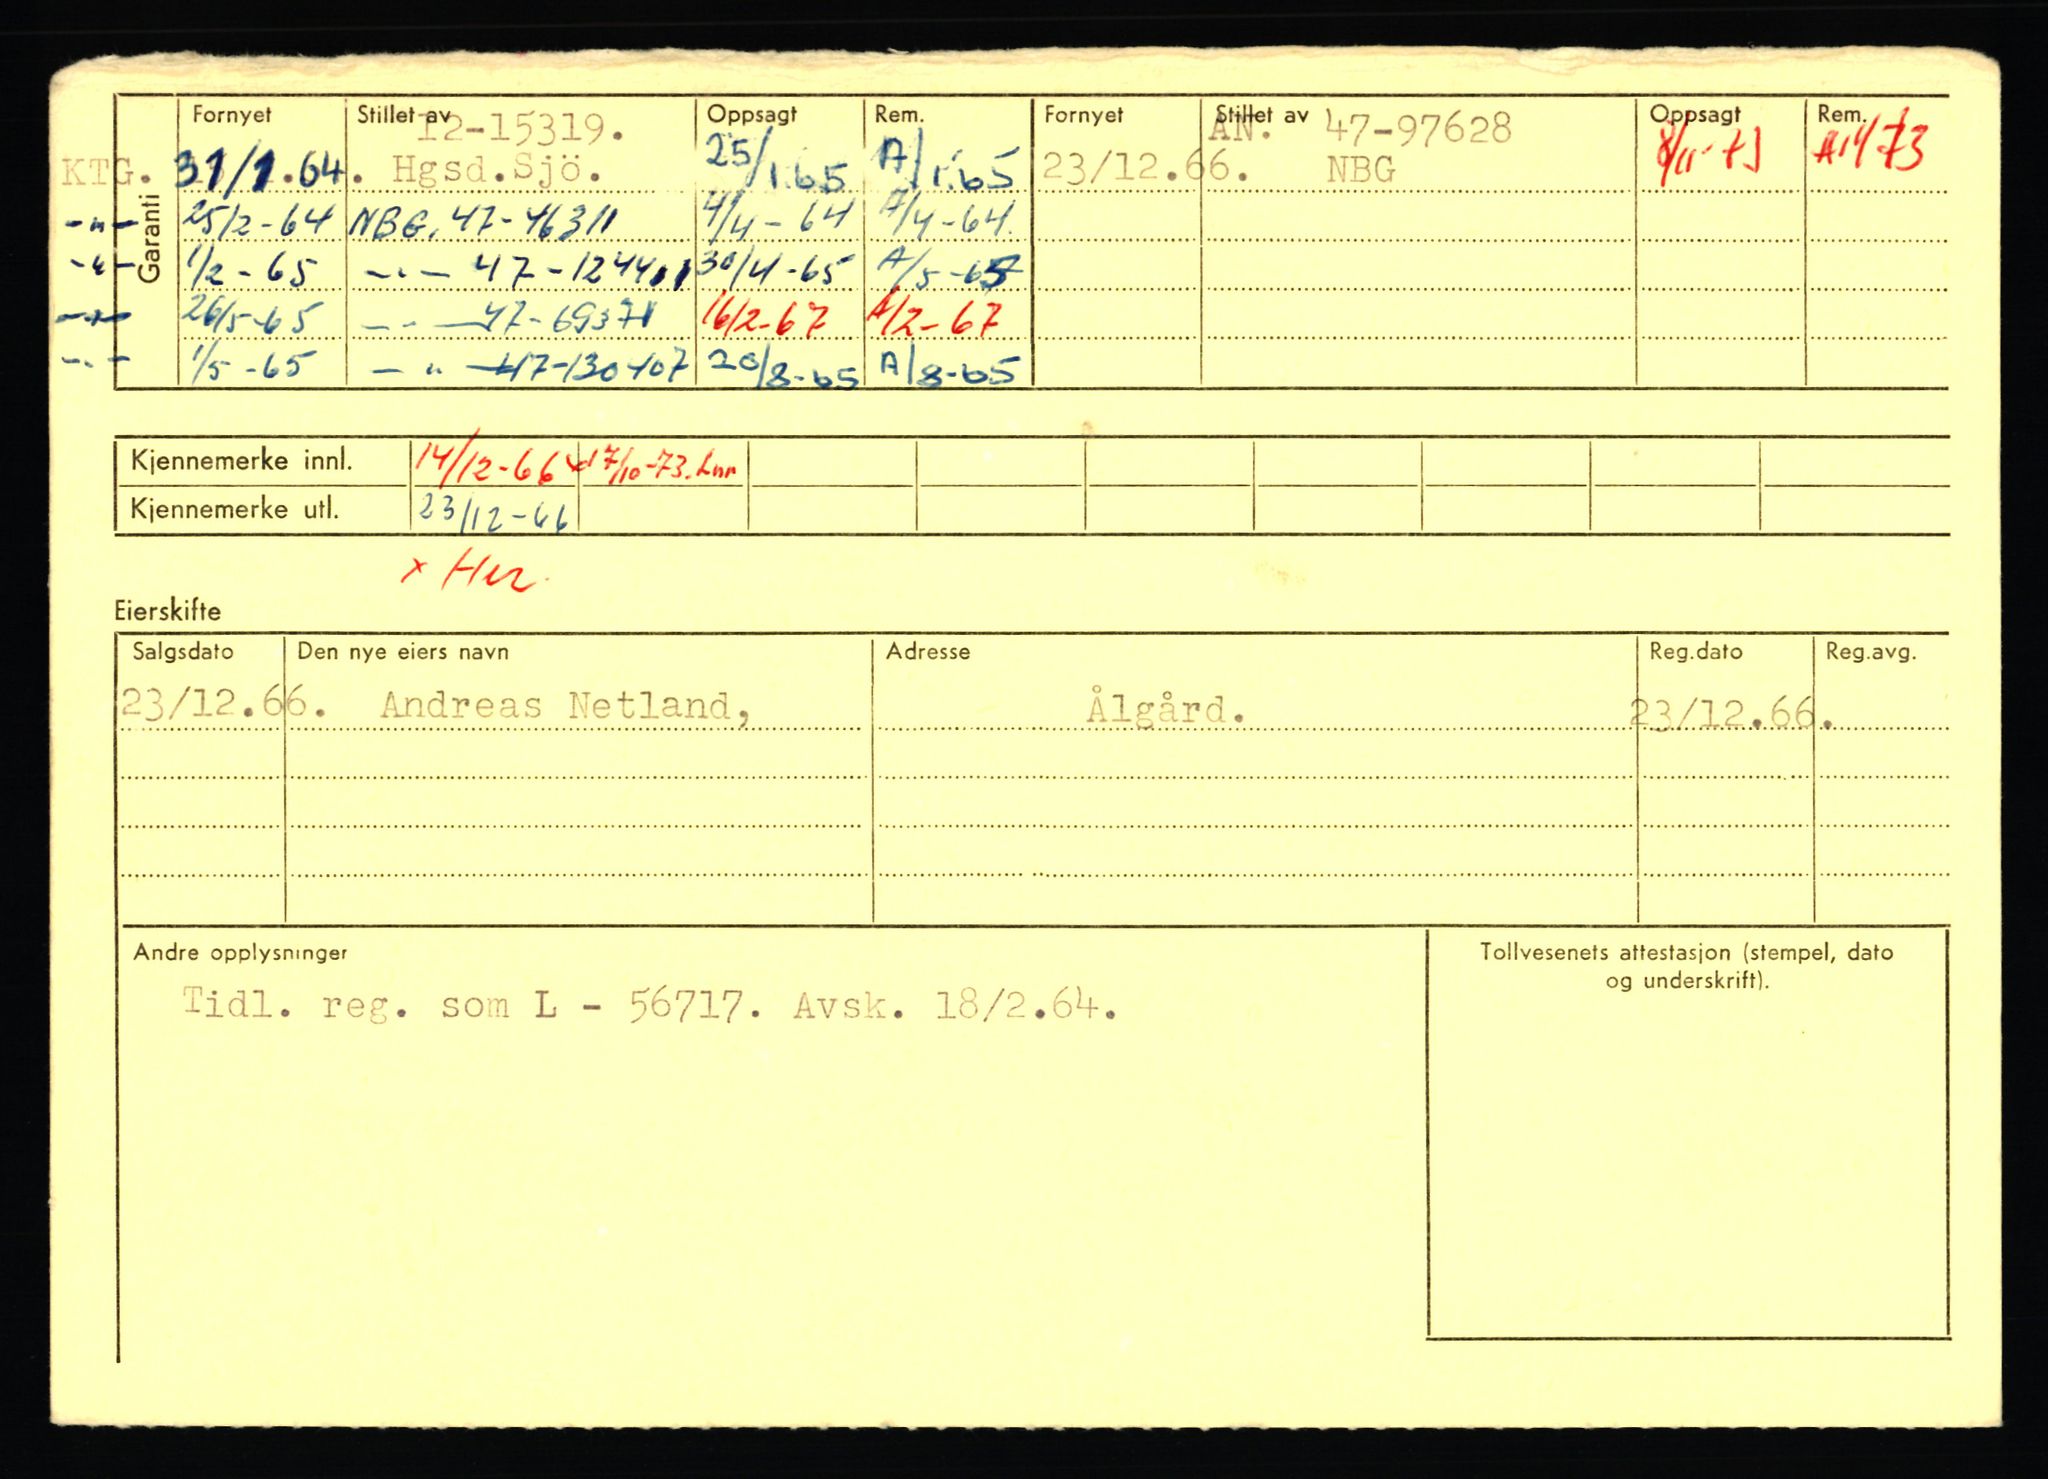 Garanti
Fornyet Stillet av Oppsagt Rem. Fornyet Stillet av Oppsagt Rem.
12-15319. AN. 47-97628
KTG. 31/1.64. Hgsd.Sjö. 25/1.65 A/1.65 23/12.66. NBG 8/11-73 A11/-73
-"- 25/2-64 NBG. 47-46311 4/4-64 A/4-64.
-"- 1/2-65 -"- 47-124411 30/4-65 A/5-65
-"- 26/5-65 -"- 47-69371 16/2-67 A/2-67
-"- 1/5-65 -"- 47-130407 20/8-65 A/8-65
Kjennemerke innl. 14/12-66 17/10-73.
Kjennemerke utl. 23/12-66
x Her.
Eierskifte
Salgsdato Den nye eiers navn Adresse Reg.dato Reg.avg.
23/12.66. Andreas Netland, Ålgård. 23/12.66.
Andre opplysninger Tollvesenets attestasjon (stempel, dato
og underskrift).
Tidl. reg. som L - 56717. Avsk. 18/2.64.